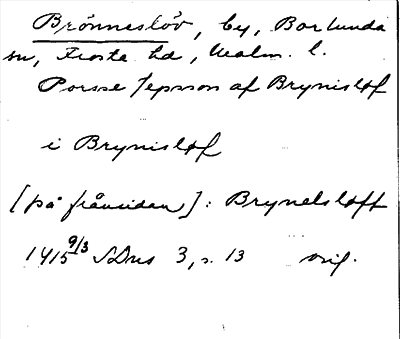 Brönneslöv, by, Borlunda
sn, Frosta hd, Malm. l.
Porsse Jepsson af Brynisløf
i Brynisløf
[på frånsidan]: Brynelsløff
1415 9/3 SDns 3, s. 13 orig.